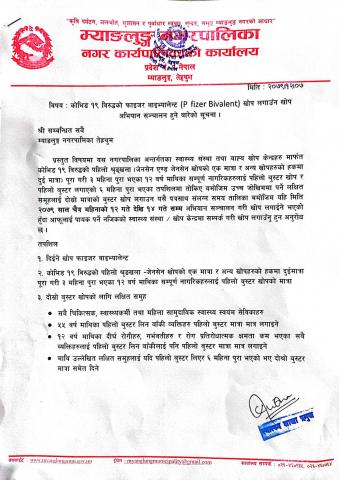 "कृषि पर्यटन, जलस्रोत, सुशासन र पूर्वाधार स्वच्छ, सुन्दर, समृद्ध म्याङलुङ नगरको आधार"
म्याङलुङ नगरपालिका
नगर कार्यपालिकाको कार्यालय
नेपाल
म्याङलुङ, तेह्रथुम
मिति : २०७९/१२/०७
विषय : कोभिड १९ विरुद्धको फाइजर बाइभ्यालेन्ट (P fizer Bivalent) खोप लगाउँन खोप
अभियान सञ्चालन हुने वारेको सूचना ।
श्री सम्बन्धित सबै
म्याङलुङ नगरपालिका तेह्रथुम
प्रस्तुत विषयमा यस नगरपालिका अन्तर्गतका स्वास्थ्य संस्था तथा वाह्य खोप केन्द्रहरु मार्फत
कोभिड १९ विरुद्धको पहिलो श्रृङ्खला (जेनसेन एण्ड जेनसेन खोपको एक मात्रा र अन्य खोपहरुको हकमा
दुई मात्रा) पूरा गरी ३ महिना पुरा भएका १२ वर्ष माथिका सम्पूर्ण नागरिकहरुलाई पहिलो बुस्टर खोप र
पहिलो बुस्टर लगाएको ६ महिना पुरा भएका तपसिलमा तोकिए वमोजिम उच्च जोखिममा पर्ने लक्षित
समुहलाई दोस्रो मात्राको बुस्टर खोप लगाउन यसै पत्रसाथ संलग्न समय तालिका बमोजिम यहि मिति
२०७९ साल चैत्र महिनाको १२ गते देखि १४ गते सम्म अभियान सञ्चालन गरी खोप लगाईने भएको
हुँदा आफूलाई पायक पर्ने नजिकको स्वास्थ्य संस्था / खोप केन्द्रमा सम्पर्क गरी खोप लगाउँनु हुन अनुरोध
छ ।
तपसिल
१. दिईने खोप फाइजर वाइभ्यालेन्ट
२. कोभिड १९ विरुद्धको पहिलो श्रृङ्खला -जेनसेन खोपको एक मात्रा र अन्य खोपहरुको हकमा दुईमात्रा
पूरा गरी ३ महिना पुरा भएका १२ वर्ष माथिका सम्पूर्ण नागरिकहरुलाई पहिलो बुस्टर खोपको मात्रा
३. दोस्रो बुस्टर खोपको लागि लक्षित समुह
• सबै चिकित्सक, स्वास्थ्यकर्मी तथा महिला सामुदायिक स्वास्थ्य स्वयंम सेविकाहरु
• ५५ वर्ष माथिका पहिलो बुस्टर लिन वाँकी व्यक्तिहरु पहिलो बुस्टर मात्रा मात्र लगाइने
• १२ वर्ष माथिका दीर्घ रोगीहरु, गर्भवतीहरु र रोग प्रतिरोधात्मक क्षमता कम भएका सबै
व्यक्तिहरुलाई पहिलो बुस्टर लिन वाँकीलाई पनि पहिलो बुस्टर मात्रा मात्र लगाइने
• माथि उल्लेखित लक्षित समुहलाई यदि पहिलो बुस्टर लिएर ६ महिना पुरा भएको भए दोस्रो बुस्टर
मात्रा समेत दिने
शाखा प्रमुख
वेवसाईट : www.myanglungmun.gov.np
ईमेल : myanglungmunicipality@gmail.com